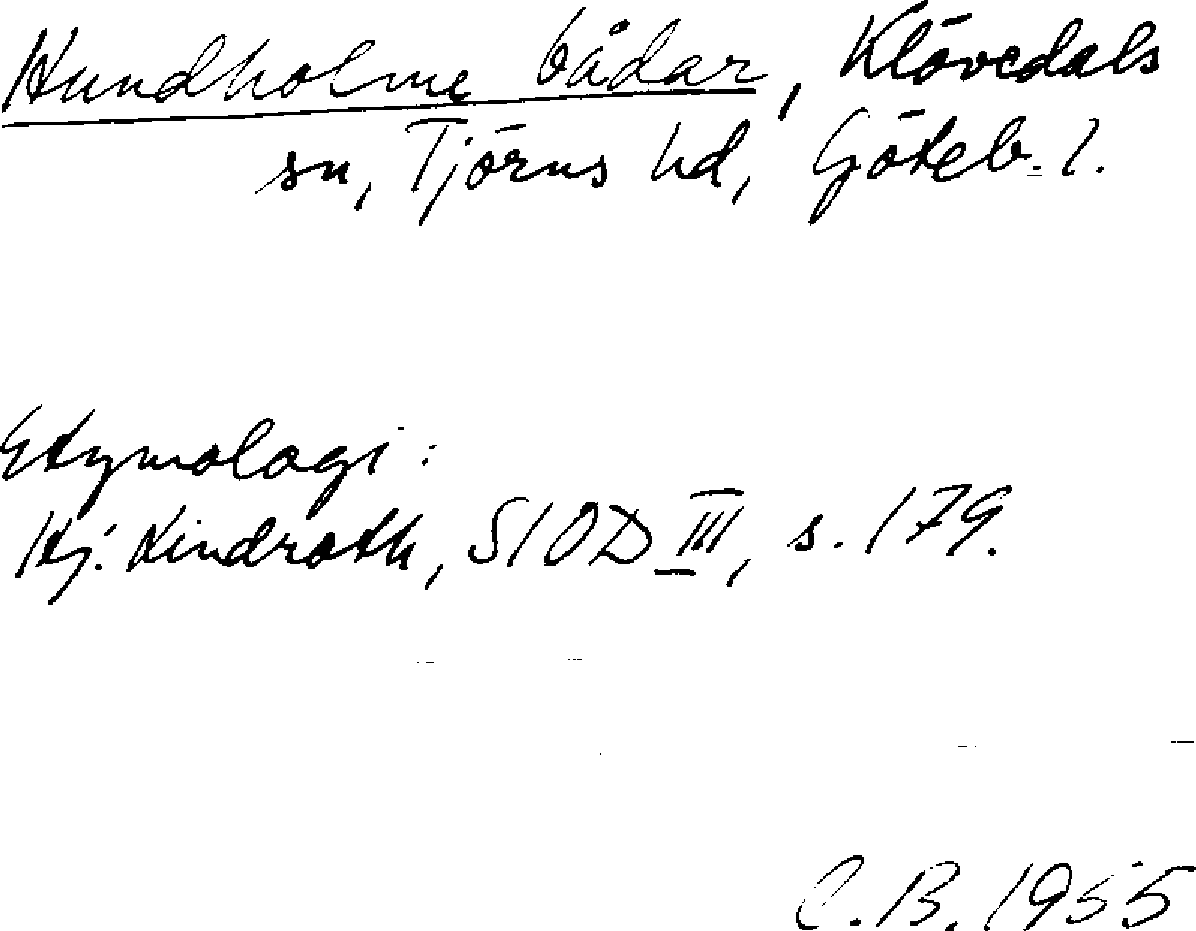 Hundholme bådar, Klövedals
sn, Tjörns hd, Göteb. l.
Etymologi:
Hj. Lindroth, SIOD III, s. 179.
C.B. 1955